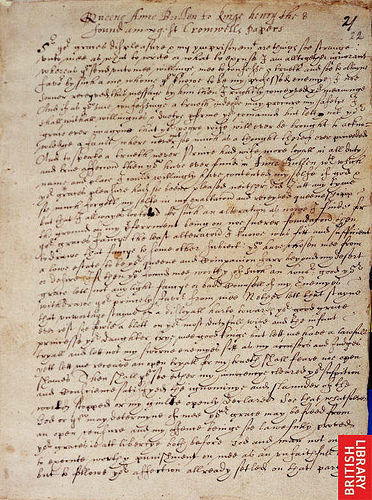 Queene Anne Bullen to Kinge henry the 8
found amongst Cromwells papers
21
22
Sr yr graces displeasure & my imprisonment are things soe strange
unto mee as what to write or what to excuse I am altogether ignorant
whereas you send unto mee to confesse a truth and soe to obtayne
favor by such a one whome you knowe to be my professed enemye I noe
sooner receyved this message by him then I rightly conceyved yr meaninge
And if as you saye confessinge a truth indeed may procure my safetye I
shall with all willingnes & dutye performe yr command but lett not yr
grace ever imagine that yr poore wife will ever be brought to
a fault where never soe much as a thought
And to speake a truth never had more loyall in all duty
and true affection then you have ever found in Anne Bullen with which
name and place I could willingly have contented my selfe if god &
yr graces pleasure had soe bene pleased neither did I att any tyme
soe much forgett my selfe in my exaltation and receyved queenshipp
but that I allwayes looked for such an alteration as now I finde for
the ground of my preferment being on noe surer foundation then
yr graces fancye the least alteration I knew was fitt and sufficient
to drawe that fancye to some other subiect you have chosen mee from
a lowe estate to be yr queene and companion farr beyond my desert
or desire if then you found mee worthy of such an honor good yr
grace lett not any light fancye or badd counsell of my enemyes
withdrawe yr princely favor from mee Neither lett that stayne
that unworthye stayne of a disloyall harte towards yr good grace
ever cast soe fowle a blott on yr most dutyfull wife and the infant
princesse yr daughter trye mee good kinge but lett me have a lawfull
tryall and lett not my sworne enemyes sitt as my accusers and Judges
yea lett me receave an open tryall for my truth shall feare noe open
shames Then shall you see either my innocencye cleered yr suspition
and conscience satisfyed the ignominye and slaunder of the
world stopped or my guilt openly declared Soe that whatsoever
God or you may determine of mee yr grace may be freed from
an open censure and my offence beinge so lawfully proved
yr grace is att libertye both before God and man not only
to execute worthy punishment on mee as an unfaithfull wife
but to followe yr affection allready setled on that partye
BRITISH
LIBRARY